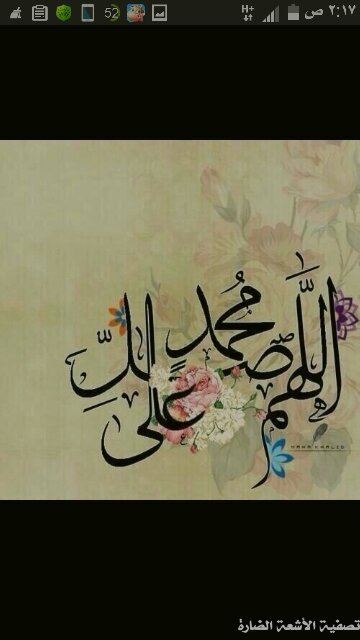 52 H+ ٢:١٧ ص
اللَّهم صلِّ على مُحمد
MAHA KHALID
تصفية الأشعة الضارة